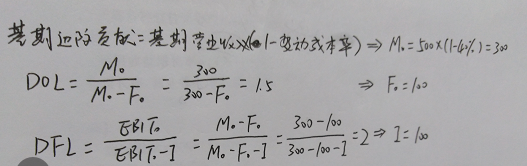 基期边际贡献=基期营业收入×(1-变动成本率) ⇒ M₀=500×(1-40%)=300
DOL = M₀/(M₀-F₀) = 300/(300-F₀) = 1.5 ⇒ F₀=100
DFL = EBIT₀/(EBIT₀-I) = (M₀-F₀)/(M₀-F₀-I) = (300-100)/(300-100-I) = 2 ⇒ I=100